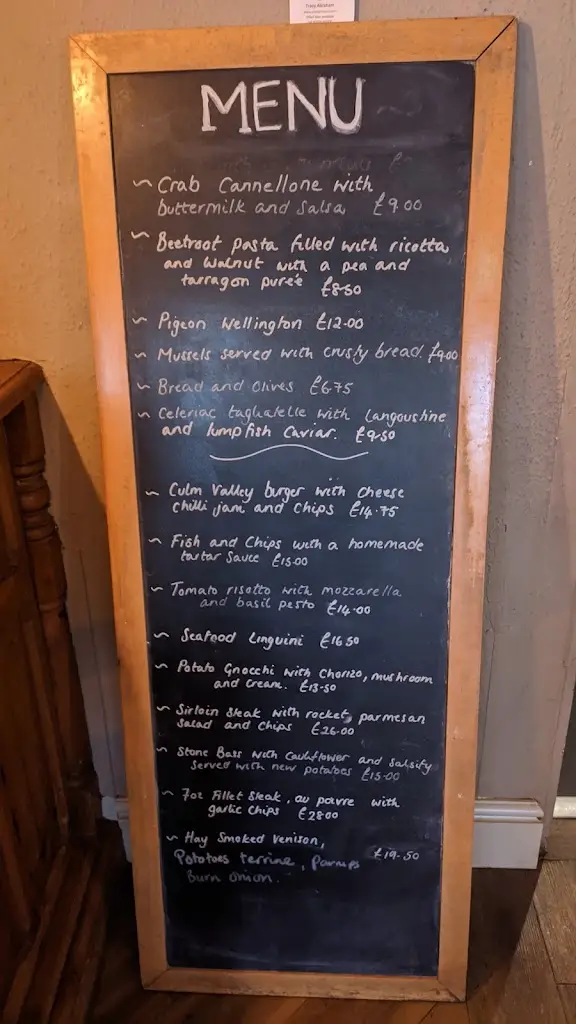 Tracy Abraham
MENU
~ Crab Cannellone with
buttermilk and salsa £9.00
~ Beetroot pasta filled with ricotta
and walnut with a pea and
tarragon pureé £8.50
~ Pigeon Wellington £12.00
~ Mussels served with crusty bread. £9.00
~ Bread and Olives £6.75
~ Celeriac tagliatelle with Langoustine
and lumpfish Caviar. £9.50
~ Culm Valley burger with cheese
chilli jam and chips £14.75
~ Fish and Chips with a homemade
tartar sauce £15.00
~ Tomato risotto with mozzarella
and basil pesto £14.00
~ Seafood Linguini £16.50
~ Potato Gnocchi with Chorizo, mushroom
and cream. £13.50
~ Sirloin steak with rocket, parmesan
salad and chips £26.00
~ Stone Bass with Cauliflower and Salsify
served with new potatoes £15.00
~ 7oz Fillet steak, au poivre with
garlic chips £28.00
~ Hay Smoked Venison,
Pototoes terrine, Parnips £19.50
Burn onion.